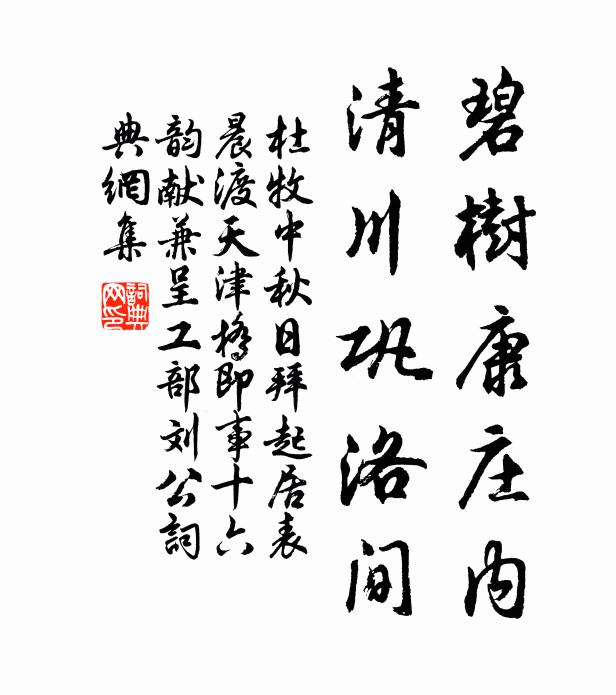 碧樹康庄内
清川巩洛间
杜牧中秋日拜起居表
晨渡天津橋即事十六
韵献兼呈工部刘公詞
典網集
詞典
网印